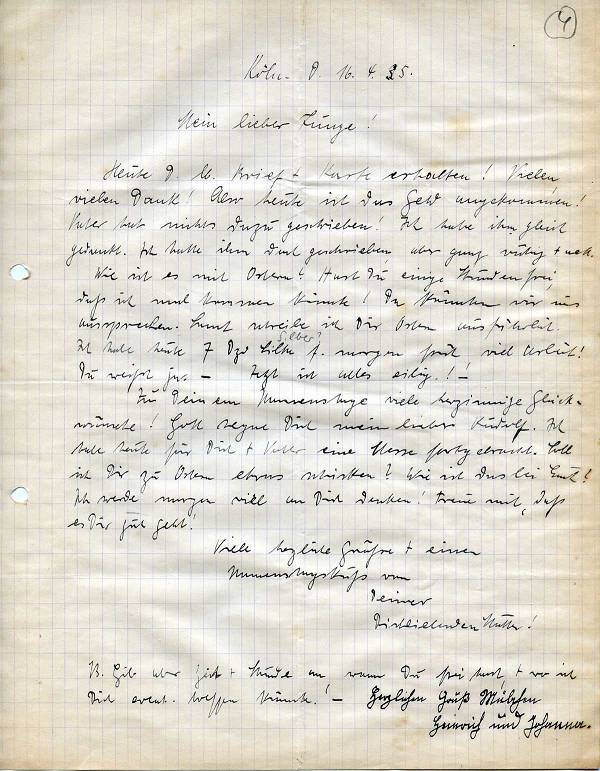 4
Köln. d. 16. 4. 35.
Mein lieber Junge!
Heute d. l. Brief + Karte erhalten! Vielen
vielen Dank! Also heute ist das Geld angekommen!
Vater hat nichts dazu geschrieben! Ich habe ihm gleich
gedankt. Ich hatte ihm geschrieben aber ganz ruhig + nett.
Wie ist es mit Ostern? Hast Du einige Stunden frei,
daß ich mal kommen könnte! Da könnten wir uns
aussprechen. Sonst schreibe ich Dir Ostern ausführlich.
Ich habe heute 7 Dzd f. morgen früh viel Arbeit!
Du weißt ja. – Jetzt ist alles eilig.! –
Zu Deinem Namenstage viele herzinnige Glück-
wünsche! Gott segne Dich mein lieber Rudolf. Ich
habe heute für Dich + Vater eine Messe Soll
ich Dir zu Ostern etwas schicken? Wie ist das bei Euch?
Ich werde morgen viel an Dich denken! Freue mich, daß
es Dir gut geht!
Viele herzliche Grüße + einen
Namenstagskuß von
Deiner
Dichliebenden Mutter!
Gib aber Zeit + Stunde an, wann Du frei hast, + wo ich
Dich event. treffen könnte! – Herzlichen Gruß
Heinrich und Johanna.